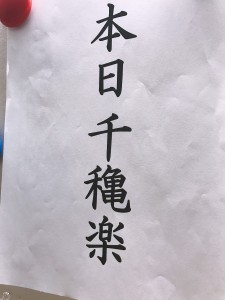 本日千穐楽